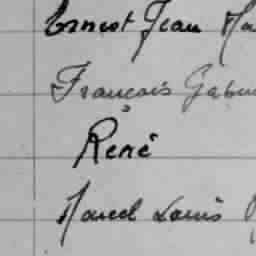 Ernest Jean Ma
François Gabri
René
Marcel Louis